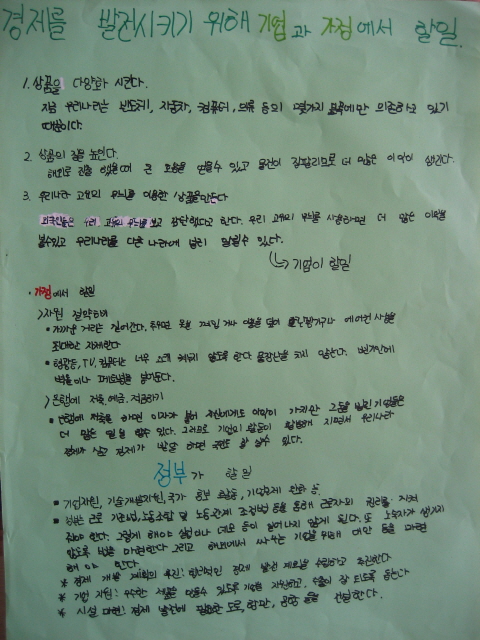 경제를 발전시키기 위해 기업과 가정에서 할일.
1. 상품을 다양화 시킨다.
지금 우리나라는 반도체, 자동차, 컴퓨터, 의류 등의 몇가지 품목에만 의존하고 있기
때문이다.
2. 상품의 질을 높인다.
해외로 수출 했을때 큰 호응을 얻을수 있고 물건이 잘팔리므로 더 많은 이익이 생긴다.
3. 우리나라 고유의 무늬를 이용한 상품을만든다
외국인들은 우리 고유의 무늬를 보고 감탄했다고 한다. 우리 고유의 무늬를 사용하면 더 많은 이익을
볼수있고 우리나라를 다른 나라에 널리 알릴수 있다.
기업이 할일
·가정에서 할일
>자원 절약하며
• 가까운 거리는 걸어간다. 추우면 옷을 껴입고 에어컨 사용을
최대한 자제한다
• 형광등, TV, 컴퓨터는 너무 오래 켜두지 않도록 한다 물장난을 치지 않는다. 변기안에
벽돌이나 페트병을 넣어둔다.
>은행에 저축, 예금, 적금하기
• 은행에 저축을 하면 이자가 붙어 자신에게도 이익이 가지만 그돈을 빌린 기업들은
더 많은 일을 할수 있다. 그러므로 기업의 활동이 활발해 지면서 우리나라
경제가 살고 경제가 발달 하면 수출도 할 수 있다.
정부가 할일
• 기업지원, 기술개발지원, 국가 홍보 활동, 기업규제 완화 등.
• 정부는 근로 기준법, 노동조합 및 노동관계 조정법 등을 통해 근로자의 권리를 지켜
줘야 한다. 그렇게 해야 실업이나 데모 등이 일어나지 않게 된다. 또 노숙자가 생기지
않도록 법을 마련한다 그리고 해외에서 싸우는 기업을 위해 대안 등을 마련
해야 한다.
* 경제 개발 계획의 추진: 합리적인 경제 발전 계획을 수립하고 추진한다
* 기업 지원: 우수한 제품을 만들수 있도록 기업을 지원하고, 수출이 잘 되도록 돕는다
* 시설 마련: 경제 발전에 필요한 도로, 항만, 공항 등을 건설한다.